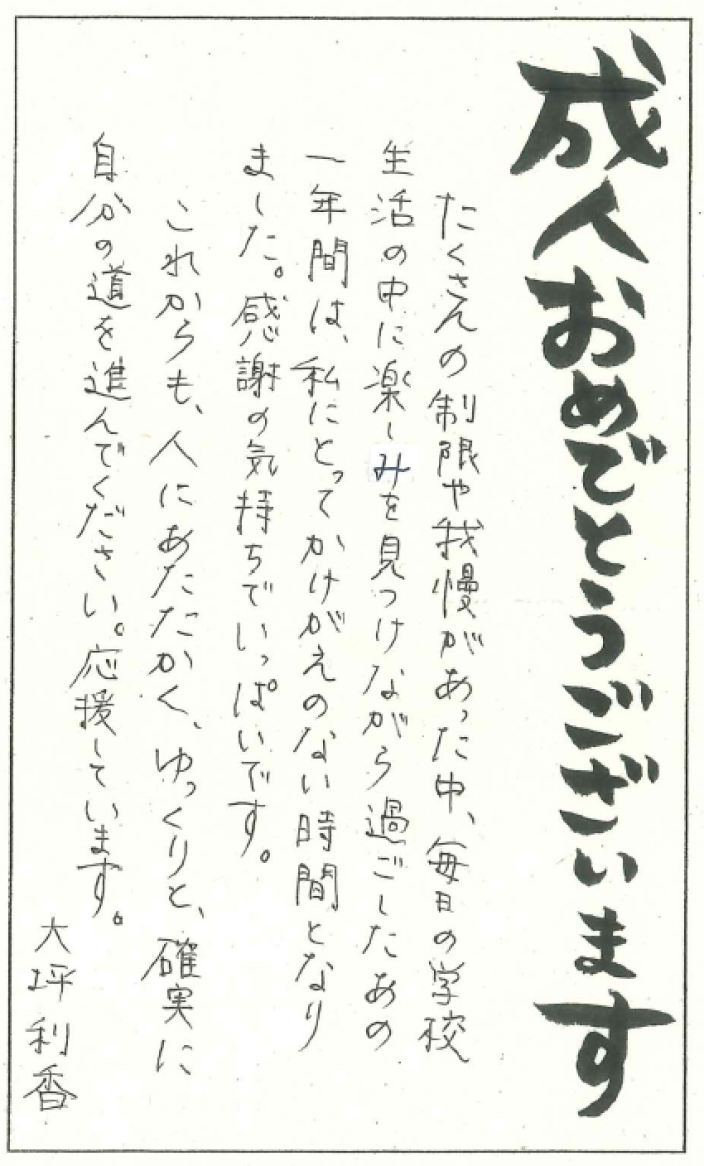 成人おめでとうございます
たくさんの制限や我慢があった中、毎日の学校
生活の中に楽しみを見つけながら過ごしたあの
一年間は、私にとってかけがえのない時間となり
ました。感謝の気持ちでいっぱいです。
これからも、人にあたたかく、ゆっくりと、確実に
自分の道を進んでください。応援しています。
大坪利香